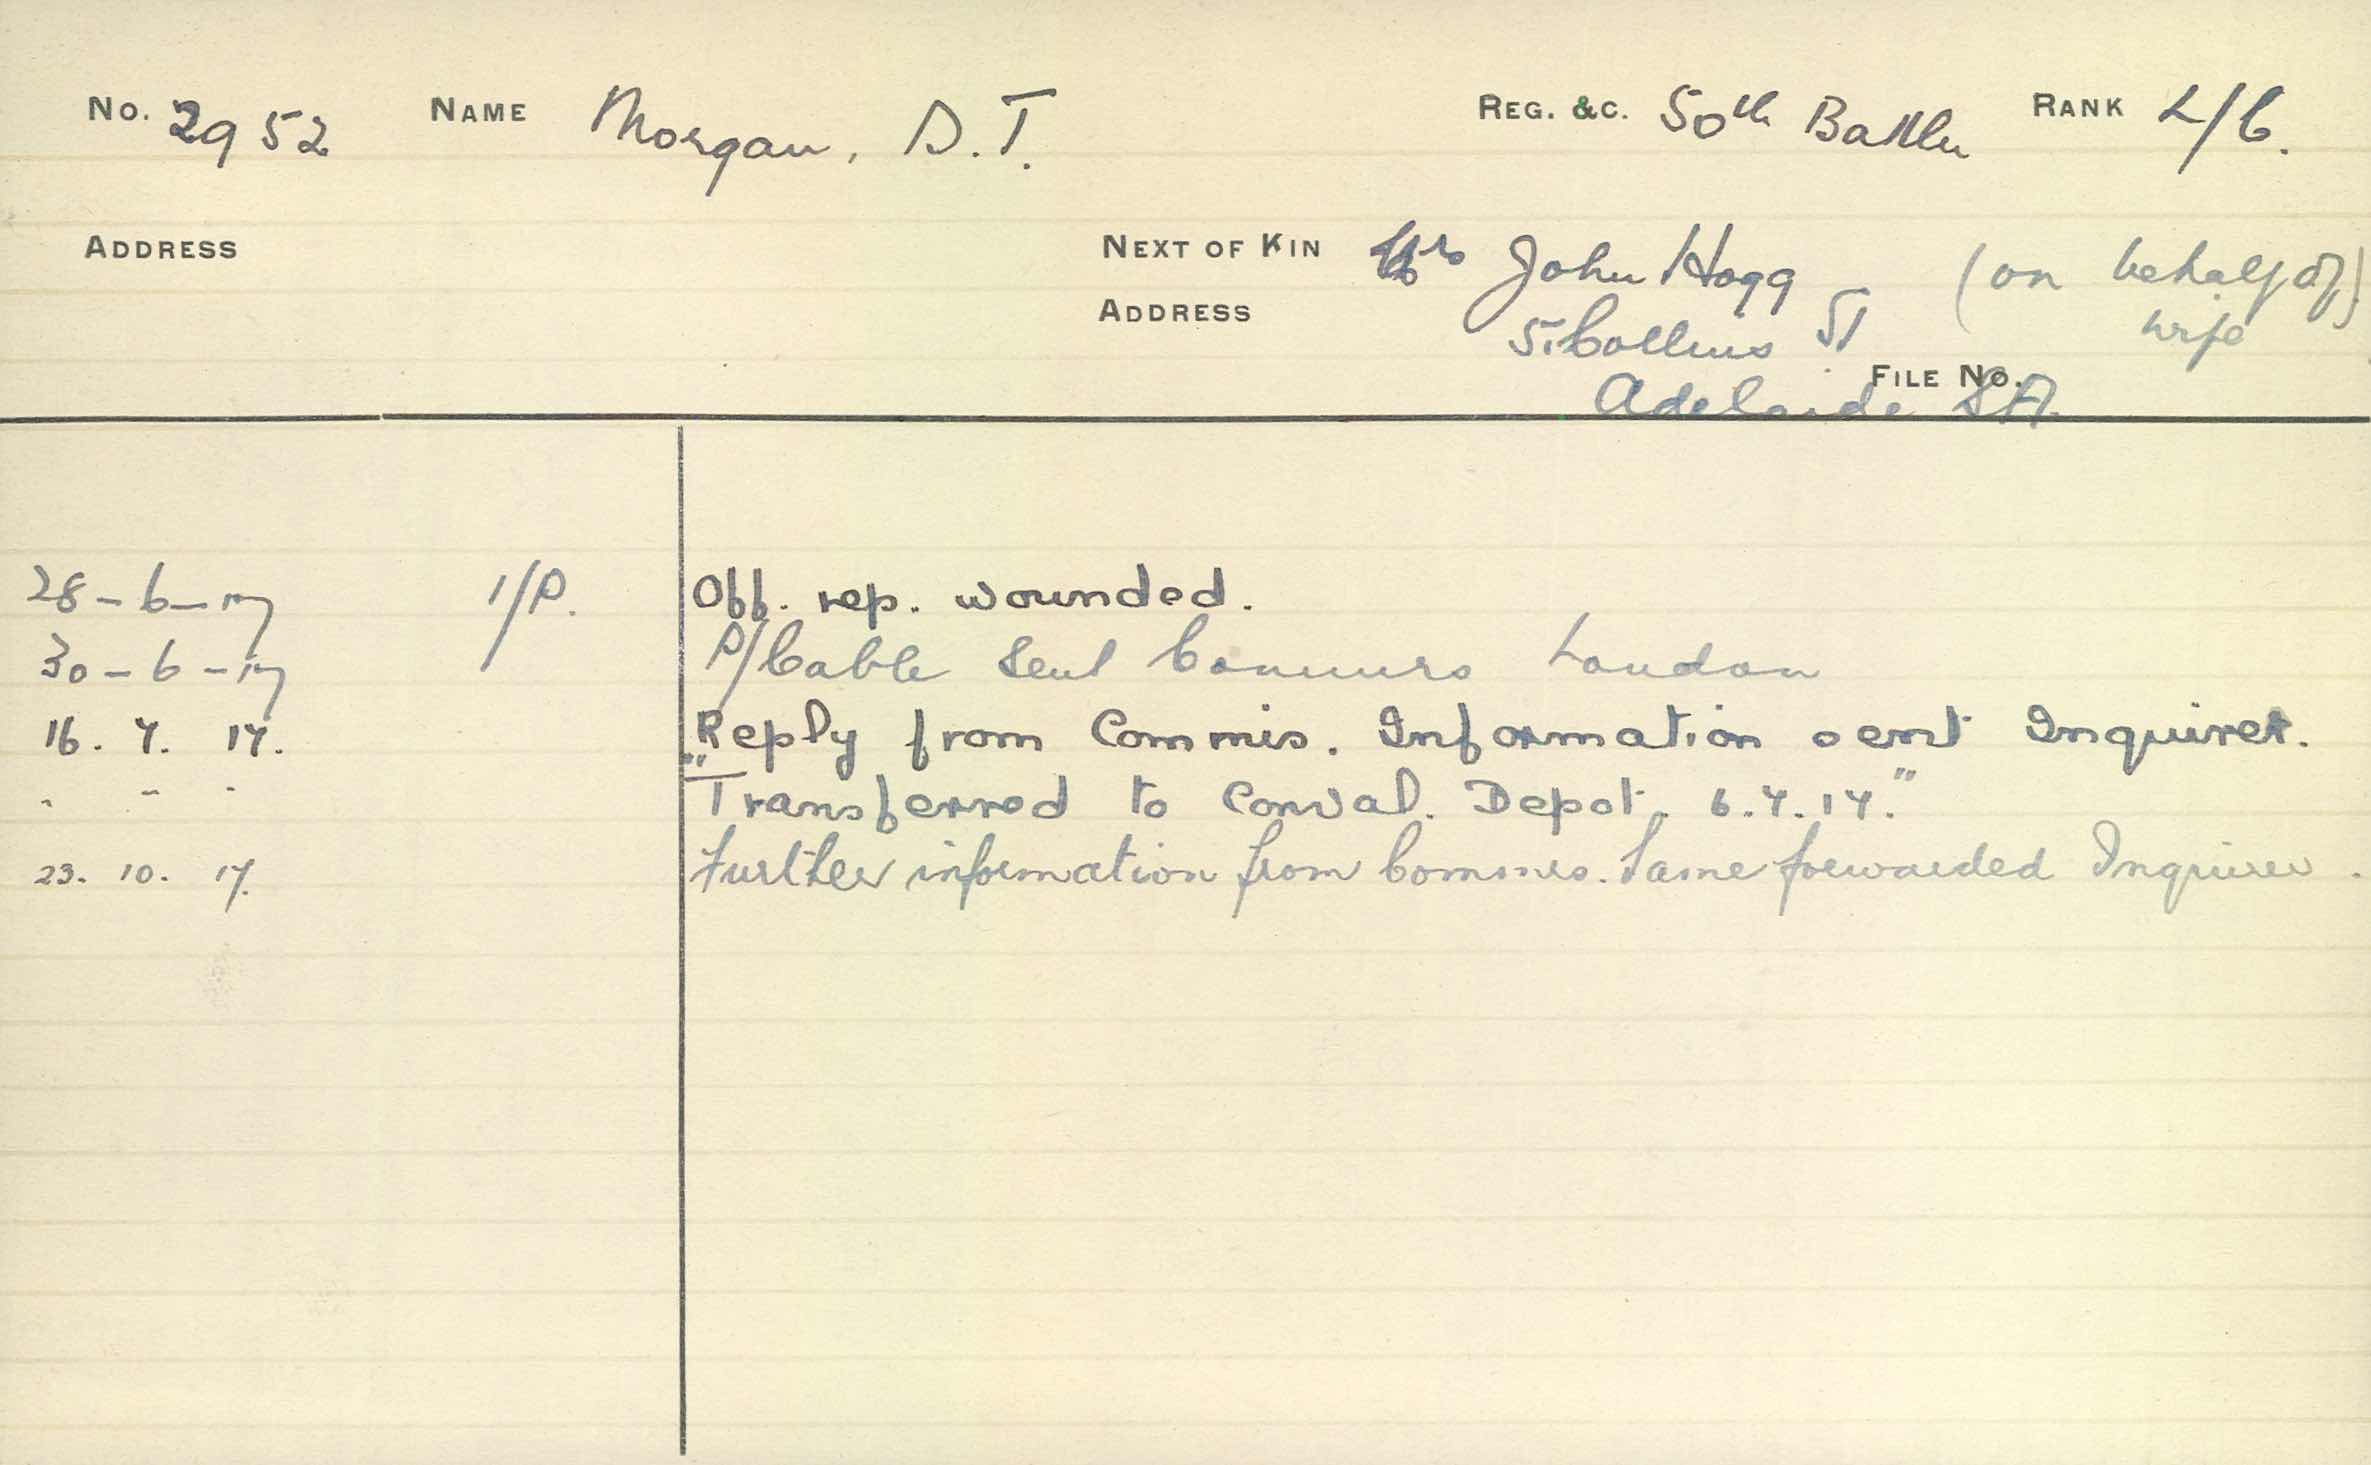 No. 2952 NAME Morgan, D.T. REG. &C. 50th Battln RANK L/C.
ADDRESS NEXT OF KIN Mrs John Hogg (on behalf of)
ADDRESS 5. Collins St wife
FILE No.
Adelaide SA.
28-6-17 1/P. Off. rep. wounded.
30-6-17 P/Cable sent Commrs London
16. 7. 17. Reply from Commis. Information sent Inquirer.
" " " "Transferred to Conval. Depot. 6.7.17."
23. 10. 17. Further information from Commrs. Same forwarded Inquirer.